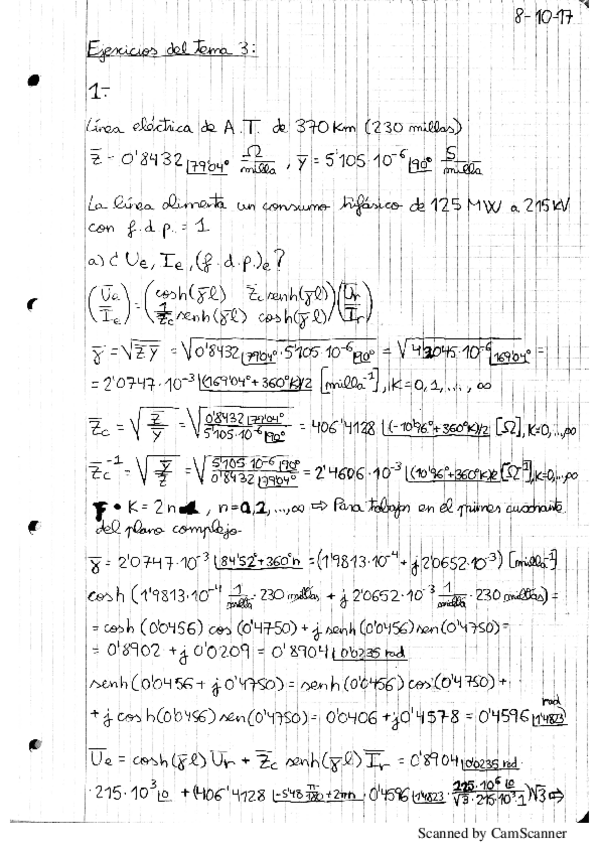 8-10-17
Ejercicios del tema 3:
1-
Línea eléctrica de A.T. de 370 Km (230 millas)
z̅ = 0'8432 |79'04° Ω/milla , y̅ = 5'105·10⁻⁶ |90° S/milla
La línea alimenta un consumo trifásico de 125 MW a 215 kV
con f.d.p. = 1
a) ¿Ue, Ie, (f.d.p.)e?
(U̅e / I̅e) = (cosh(γ̅l) Z̅c senh(γ̅l) / 1/Z̅c senh(γ̅l) cosh(γ̅l)) (U̅r / I̅r)
γ̅ = √(z̅ y̅) = √(0'8432 |79'04° · 5'105·10⁻⁶ |90°) = √(4'3045·10⁻⁶ |169'04°) =
= 2'0747·10⁻³ |(169'04°+360°K)/2 [milla⁻¹], K=0,1,...,∞
Z̅c = √(z̅/y̅) = √(0'8432 |79'04° / 5'105·10⁻⁶ |90°) = 406'4128 |(-10'96°+360°K)/2 [Ω], K=0,...,∞
Z̅c⁻¹ = √(y̅/z̅) = √(5'105·10⁻⁶ |90° / 0'8432 |79'04°) = 2'4606·10⁻³ |(10'96°+360°K)/2 [Ω⁻¹], K=0,...,∞
• K = 2n , n=0,1,2,...,∞ ⇒ Para trabajar en el primer cuadrante
del plano complejo.
γ̅ = 2'0747·10⁻³ |84'52°+360°n = (1'9813·10⁻⁴ + j 2'0652·10⁻³) [milla⁻¹]
cosh (1'9813·10⁻⁴ 1/milla · 230 millas + j 2'0652·10⁻³ 1/milla · 230 millas) =
= cosh (0'0456) cos (0'4750) + j senh (0'0456) sen (0'4750) =
= 0'8902 + j 0'0209 = 0'8904 |0'0235 rad
senh (0'0456 + j 0'4750) = senh (0'0456) cos (0'4750) +
+ j cosh (0'0456) sen (0'4750) = 0'0406 + j 0'4578 = 0'4596 |1'4823 rad
U̅e = cosh(γ̅l) U̅r + Z̅c senh(γ̅l) I̅r = 0'8904 |0'0235 rad ·
· 215·10³ |0 + (406'4128 |-5'48 π/180 + 2πn · 0'4596 |1'4823 · 125·10⁶ |0 / √3·215·10³·1) √3 ⇒
Scanned by CamScanner